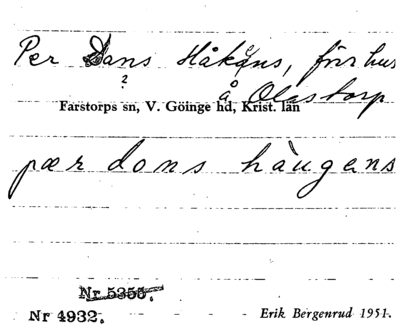 Per Dans Håkans, förr hus
?
å Olastorp
Farstorps sn, V. Göinge hd, Krist. län
pær dons håugens
Nr 5355.
Nr 4932. Erik Bergenrud 1951.